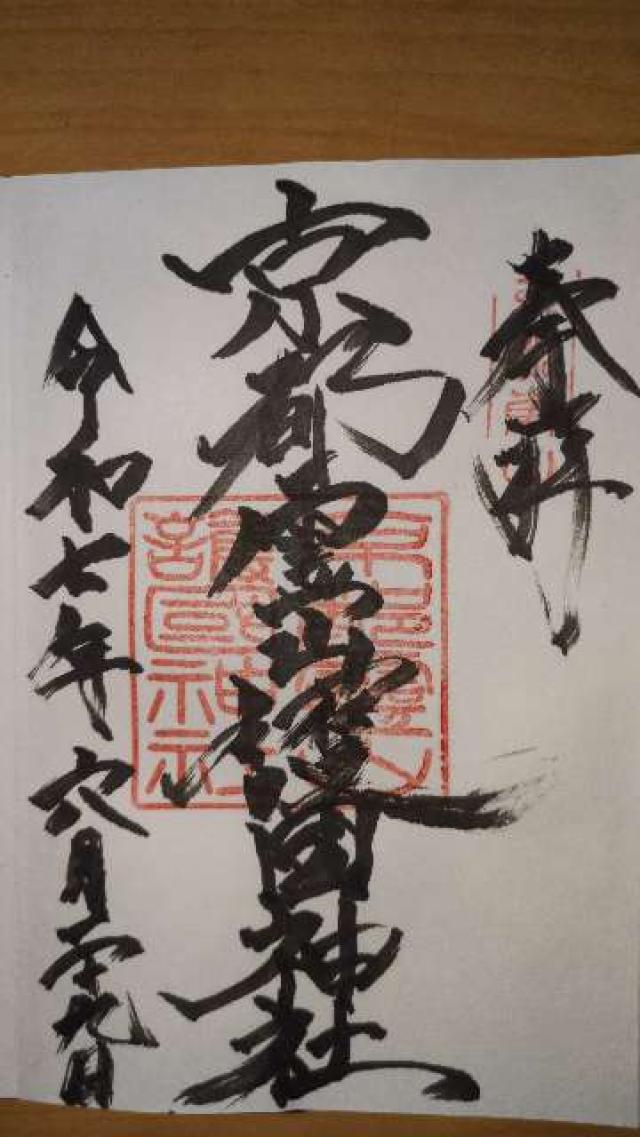 奉拝
京都霊山護国神社
令和七年六月二十九日